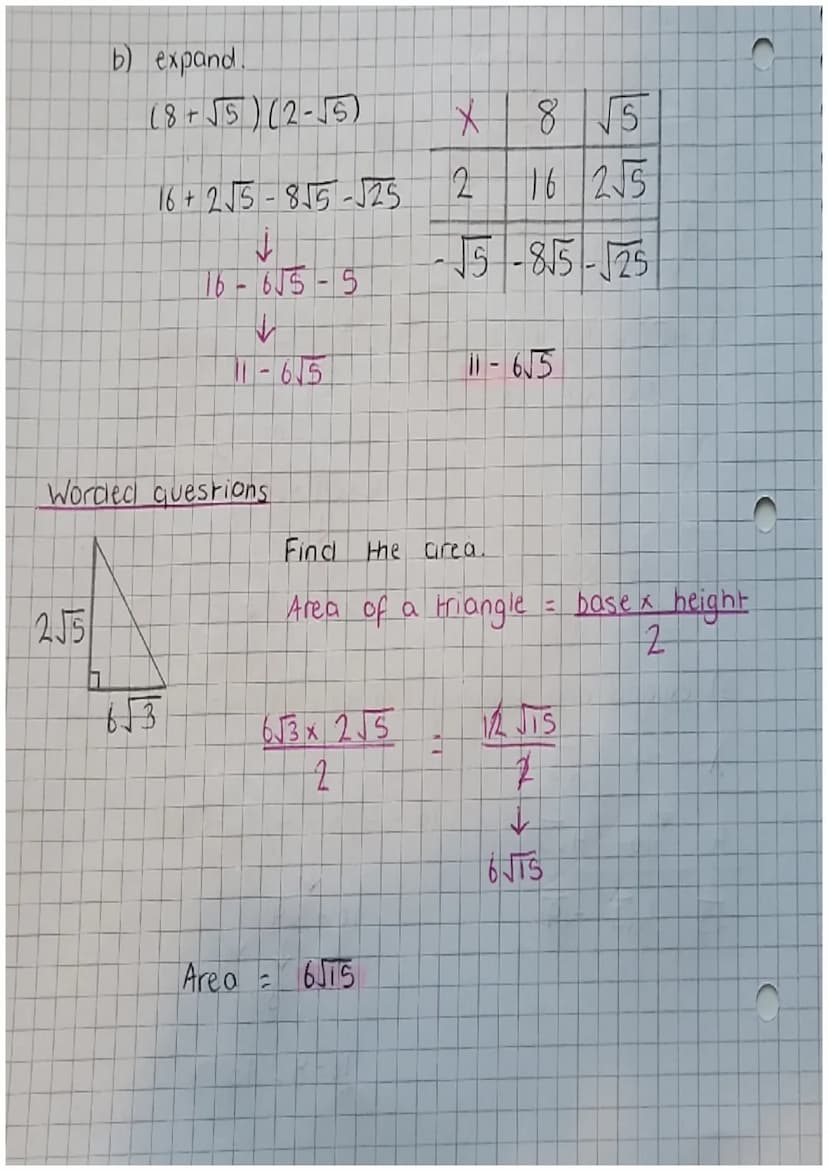 b) expand.
(8 + √5)(2-√5)
16 + 2√5 - 8√5 - √25
↓
16 - 6√5 - 5
↓
11 - 6√5
× 8 √5
2 16 2√5
-√5 -8√5 -√25
11 - 6√5
Worded questions
2√5
6√3
Find the area.
Area of a triangle = base × height
2
6√3 × 2√5 = 12√15
2 2
↓
6√15
Area = 6√15